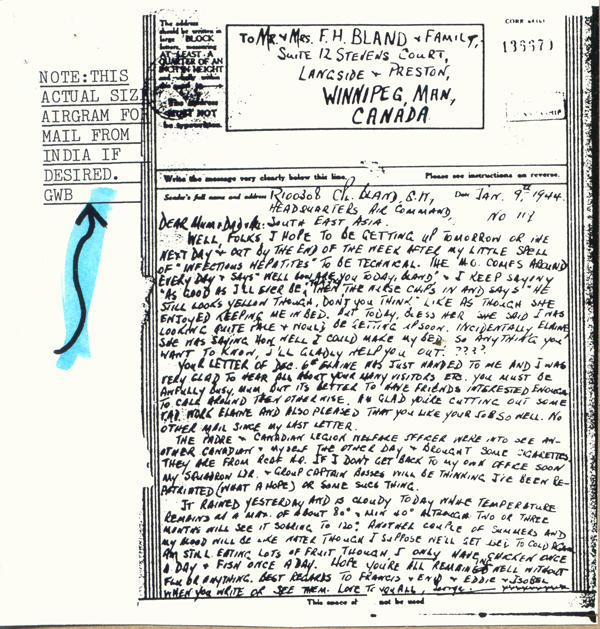 NOTE:THIS
ACTUAL SIZ
AIRGRAM FO
MAIL FROM
INDIA IF
DESIRED.
GWB
The address
should be written in
large BLOCK
letters, measuring
AT LEAST A
QUARTER OF AN
INCH IN HEIGHT
The address
MUST NOT
be typewritten.
TO MR. & MRS. F. H. BLAND & FAMILY,
SUITE 12 STEVENS COURT,
LANGSIDE & PRESTON,
WINNIPEG, MAN,
CANADA
136671
Write the message very clearly below this line.
Please see instructions on reverse.
Sender's full name and address R100308 CPL. BLAND, G.W, Date JAN. 9th 1944.
HEADQUARTERS AIR COMMAND,
SOUTH EAST ASIA. NO 113
DEAR MUM & DAD &
WELL, FOLKS I HOPE TO BE GETTING UP TOMORROW OR THE
NEXT DAY & OUT BY THE END OF THE WEEK AFTER MY LITTLE SPELL
OF "INFECTIOUS HEPATITES" TO BE TECHNICAL. THE M.O. COMES AROUND
EVERY DAY & SAYS "WELL HOW ARE YOU TODAY BLAND" & I KEEP SAYING
"AS GOOD AS I'LL EVER BE," THEN THE NURSE CHIPS IN AND SAYS "HE
STILL LOOKS YELLOW THOUGH, DON'T YOU THINK" LIKE AS THOUGH SHE
ENJOYED KEEPING ME IN BED. BUT TODAY, BLESS HER SHE SAID I WAS
LOOKING QUITE PALE & WOULD BE GETTING UP SOON. INCIDENTALLY, ELAINE
SHE WAS SAYING HOW WELL I COULD MAKE MY BED SO ANYTHING YOU
WANT TO KNOW, I'LL GLADLY HELP YOU OUT. ????
YOUR LETTER OF DEC. 6th ELAINE WAS JUST HANDED TO ME AND I WAS
VERY GLAD TO HEAR ALL ABOUT YOUR MANY VISITORS ETC. YOU MUST BE
AWFULLY BUSY, MUM BUT ITS BETTER TO HAVE FRIENDS INTERESTED ENOUGH
TO CALL AROUND THEN OTHERWISE. AM GLAD YOU'RE CUTTING OUT SOME
WORK ELAINE AND ALSO PLEASED THAT YOU LIKE YOUR JOB SO WELL. NO
OTHER MAIL SINCE MY LAST LETTER.
THE PADRE & CANADIAN LEGION WELFARE OFFICER WERE INTO SEE AN-
OTHER CANADIAN & MYSELF THE OTHER DAY & BROUGHT SOME CIGARETTES
THEY ARE FROM RCAF HQ. IF I DON'T GET BACK TO MY OWN OFFICE SOON
MY SQUADRON LDR. & GROUP CAPTAIN BOSSES WILL BE THINKING I'VE BEEN RE-
PATRIATED (WHAT A HOPE) OR SOME SUCH THING.
IT RAINED YESTERDAY AND IS CLOUDY TODAY WHILE TEMPERATURE
REMAINS AT A MAX. OF ABOUT 80° & MIN 40° ALTHOUGH TWO OR THREE
MONTHS WILL SEE IT SOARING TO 120°. ANOTHER COUPLE OF SUMMERS AND
MY BLOOD WILL BE LIKE WATER THOUGH I SUPPOSE WE'LL GET USED TO COLD AGAIN
AM STILL EATING LOTS OF FRUIT THOUGH, I ONLY HAVE CHICKEN ONCE
A DAY & FISH ONCE A DAY. HOPE YOU'RE ALL REMAINING WELL WITHOUT
FLU OR ANYTHING. BEST REGARDS TO FRANCIS & ENID & EDDIE & ISOBEL
WHEN YOU WRITE OR SEE THEM. LOVE TO YOU ALL, George. xxxxxxxx
This space not be used